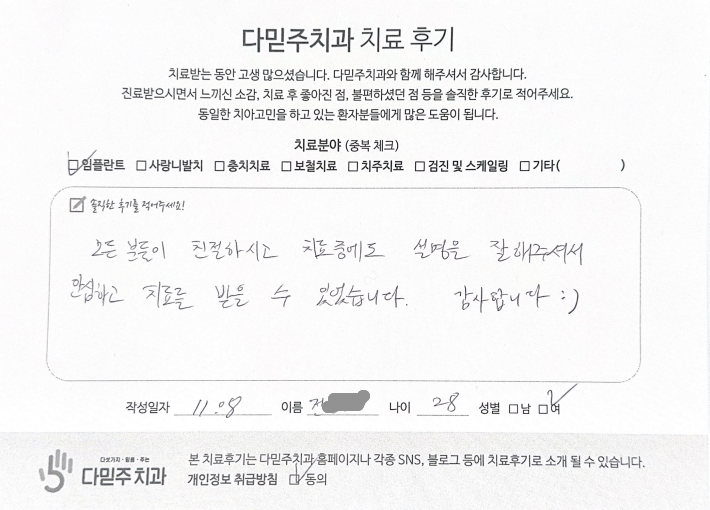 다믿주치과 치료 후기
치료받는 동안 고생 많으셨습니다. 다믿주치과와 함께 해주셔서 감사합니다.
진료받으시면서 느끼신 소감, 치료 후 좋아진 점, 불편하셨던 점 등을 솔직한 후기로 적어주세요.
동일한 치아고민을 하고 있는 환자분들에게 많은 도움이 됩니다.
치료분야 (중복 체크)
임플란트 사랑니발치 충치치료 보철치료 치주치료 검진 및 스케일링 기타( )
솔직한 후기를 적어주세요!
모든 분들이 친절하시고 치료중에도 설명을 잘해주셔서
안심하고 치료를 받을 수 있었습니다. 감사합니다 :)
작성일자 11.08 이름 전 나이 28 성별 남 여
다섯가지·믿음·주는
다믿주치과
본 치료후기는 다믿주치과 홈페이지나 각종 SNS, 블로그 등에 치료후기로 소개 될 수 있습니다.
개인정보 취급방침 동의